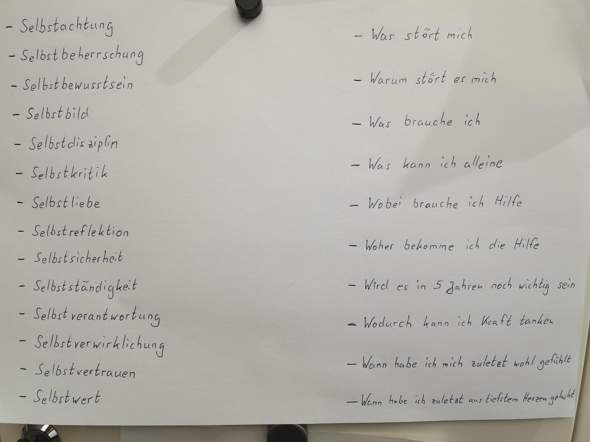 - Selbstachtung
- Selbstbeherrschung
- Selbstbewusstsein
- Selbstbild
- Selbstdisziplin
- Selbstkritik
- Selbstliebe
- Selbstreflektion
- Selbstsicherheit
- Selbstständigkeit
- Selbstverantwortung
- Selbstverwirklichung
- Selbstvertrauen
- Selbstwert
- Was stört mich
- Warum stört es mich
- Was brauche ich
- Was kann ich alleine
- Wobei brauche ich Hilfe
- Woher bekomme ich die Hilfe
- Wird es in 5 Jahren noch wichtig sein
- Wodurch kann ich Kraft tanken
- Wann habe ich mich zuletzt wohl gefühlt
- Wann habe ich zuletzt aus tiefstem Herzen gelacht